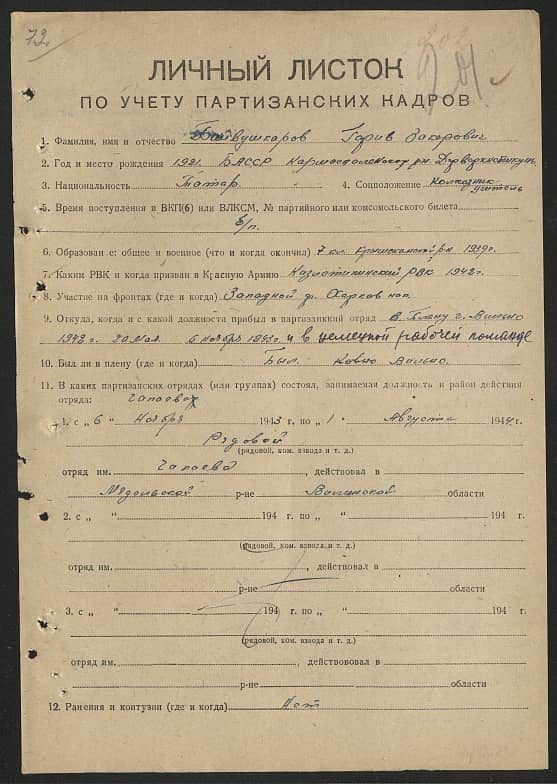 72
ЛИЧНЫЙ ЛИСТОК
ПО УЧЕТУ ПАРТИЗАНСКИХ КАДРОВ
1. Фамилия, имя и отчество Байвушкаров Гарив Закарович
2. Год и место рождения 1921. БАССР
3. Национальность Татар. 4. Соцположение колхозник
5. Время поступления в ВКП(б) или ВЛКСМ, № партийного или комсомольского билета
б/п.
6. Образование: общее и военное (что и когда окончил) 7 кл. 1939г.
7. Каким РВК и когда призван в Красную Армию РВК 1942г.
8. Участие на фронтах (где и когда) Западной ф. Харков
9. Откуда, когда и с какой должности прибыл в партизанский отряд В. Плену г. Вильно
1942 г. 20 мая. 6 Ноября 1943г. и в немецкой рабочей команде
10. Был ли в плену (где и когда) Был. Ковно Вильно.
11. В каких партизанских отрядах (или группах) состоял, занимаемая должность и район действия
отряда: Чапаева
1. с „ 6 “ Ноября 1943 г. по „ 1 “ Августа 1944 г.
Рядовой
(рядовой, ком. взвода и т. д.)
отряд им. Чапаева, действовал в
Мядельской р-не Вилинской области
2. с „ “ 194 г. по „ “ 194 г.
(рядовой, ком. взвода и т. д.)
отряд им. , действовал в
р-не области
3. с „ “ 194 г. по „ “ 194 г.
(рядовой, ком. взвода и т. д.)
отряд им. , действововал в
р-не области
12. Ранения и контузии (где и когда) Нет